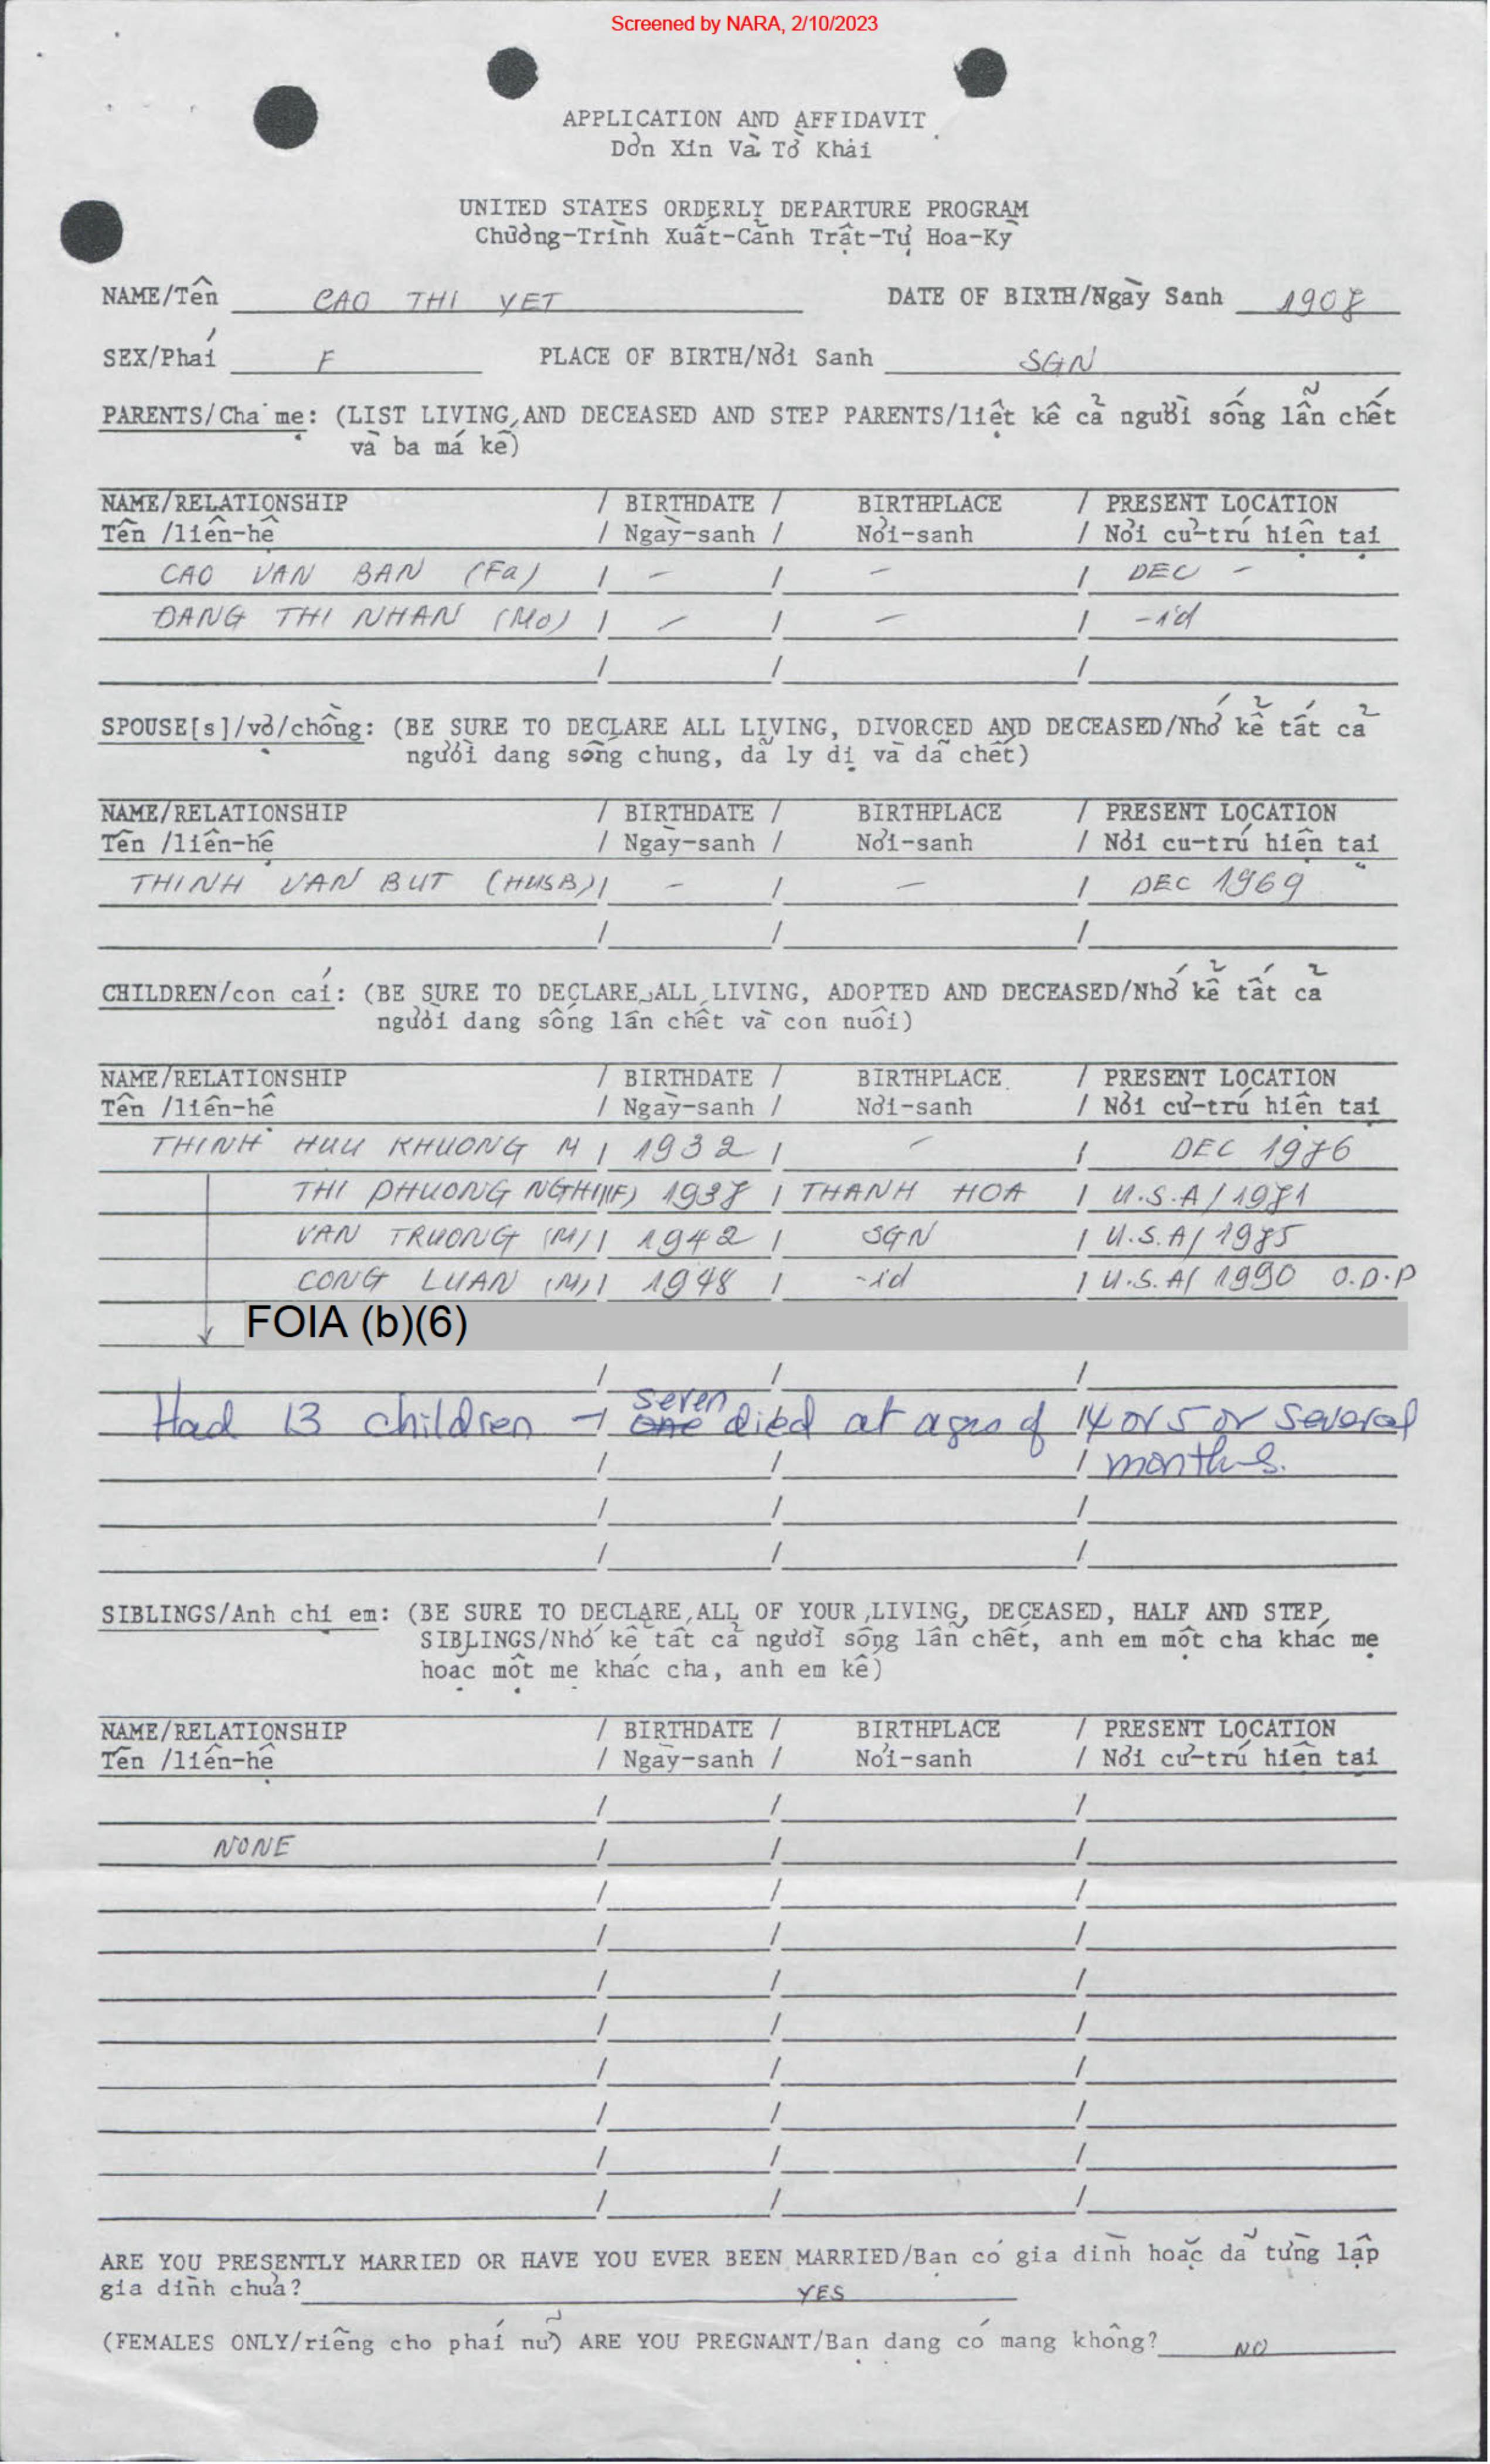 Screened by NARA, 2/10/2023
APPLICATION AND AFFIDAVIT
Dơn Xin Và Tờ Khải
UNITED STATES ORDERLY DEPARTURE PROGRAM
Chương-Trình Xuất-Cảnh Trật-Tự Hoa-Kỳ
NAME/Tên CAO THI YET DATE OF BIRTH/Ngày Sanh 1908
SEX/Phái F PLACE OF BIRTH/Nơi Sanh SGN
PARENTS/Cha mẹ: (LIST LIVING AND DECEASED AND STEP PARENTS/liệt kê cả người sống lẫn chết
và ba má kế)
NAME/RELATIONSHIP / BIRTHDATE / BIRTHPLACE / PRESENT LOCATION
Tên /liên-hệ / Ngày-sanh / Nơi-sanh / Nơi cư-trú hiện tại
CAO VAN BAN (Fa) / - / - / DEC -
DANG THI NHAN (Mo) / - / - / -id
/ / /
SPOUSE[s]/vợ/chồng: (BE SURE TO DECLARE ALL LIVING, DIVORCED AND DECEASED/Nhớ kể tất cả
người dang sống chung, dã ly dị và dã chết)
NAME/RELATIONSHIP / BIRTHDATE / BIRTHPLACE / PRESENT LOCATION
Tên /liên-hệ / Ngày-sanh / Nơi-sanh / Nơi cu-trú hiện tại
THINH VAN BUT (HUSB) / - / - / DEC 1969
/ / /
CHILDREN/con cái: (BE SURE TO DECLARE ALL LIVING, ADOPTED AND DECEASED/Nhớ kể tất cả
người dang sống lẫn chết và con nuôi)
NAME/RELATIONSHIP / BIRTHDATE / BIRTHPLACE / PRESENT LOCATION
Tên /liên-hệ / Ngày-sanh / Nơi-sanh / Nơi cư-trú hiện tại
THINH HUU KHUONG M / 1932 / - / DEC 1986
THI PHUONG NGHI (F) 1938 / THANH HOA / U.S.A / 1981
VAN TRUONG (M) / 1942 / SGN / U.S.A / 1985
CONG LUAN (M) / 1948 / -id / U.S.A / 1990 O.D.P
FOIA (b)(6)
/ / /
Had 13 children - one seven died at ages of 14 or 5 or several
/ / / months.
/ / /
/ / /
SIBLINGS/Anh chị em: (BE SURE TO DECLARE ALL OF YOUR LIVING, DECEASED, HALF AND STEP
SIBLINGS/Nhớ kể tất cả người sống lẫn chết, anh em một cha khác mẹ
hoạc một mẹ khác cha, anh em kế)
NAME/RELATIONSHIP / BIRTHDATE / BIRTHPLACE / PRESENT LOCATION
Tên /liên-hệ / Ngày-sanh / Nơi-sanh / Nơi cư-trú hiện tại
/ / /
NONE / / /
/ / /
/ / /
/ / /
/ / /
/ / /
/ / /
/ / /
/ / /
ARE YOU PRESENTLY MARRIED OR HAVE YOU EVER BEEN MARRIED/Bạn có gia dình hoặc dã từng lập
gia dình chưa? YES
(FEMALES ONLY/riêng cho phái nữ) ARE YOU PREGNANT/Bạn dang có mang không? NO